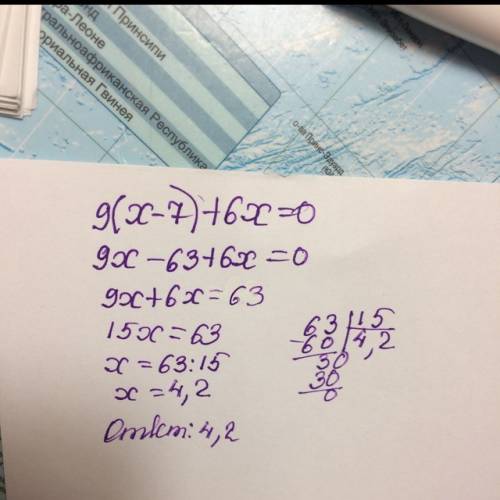 и Принсипи
ра-Леоне
ральноафриканская Республика
ториальная Гвинея
9(x-7)+6x=0
9x-63+6x=0
9x+6x=63
15x=63
x=63:15
x=4,2
Ответ: 4,2
63|15
-60 4,2
30
30
0